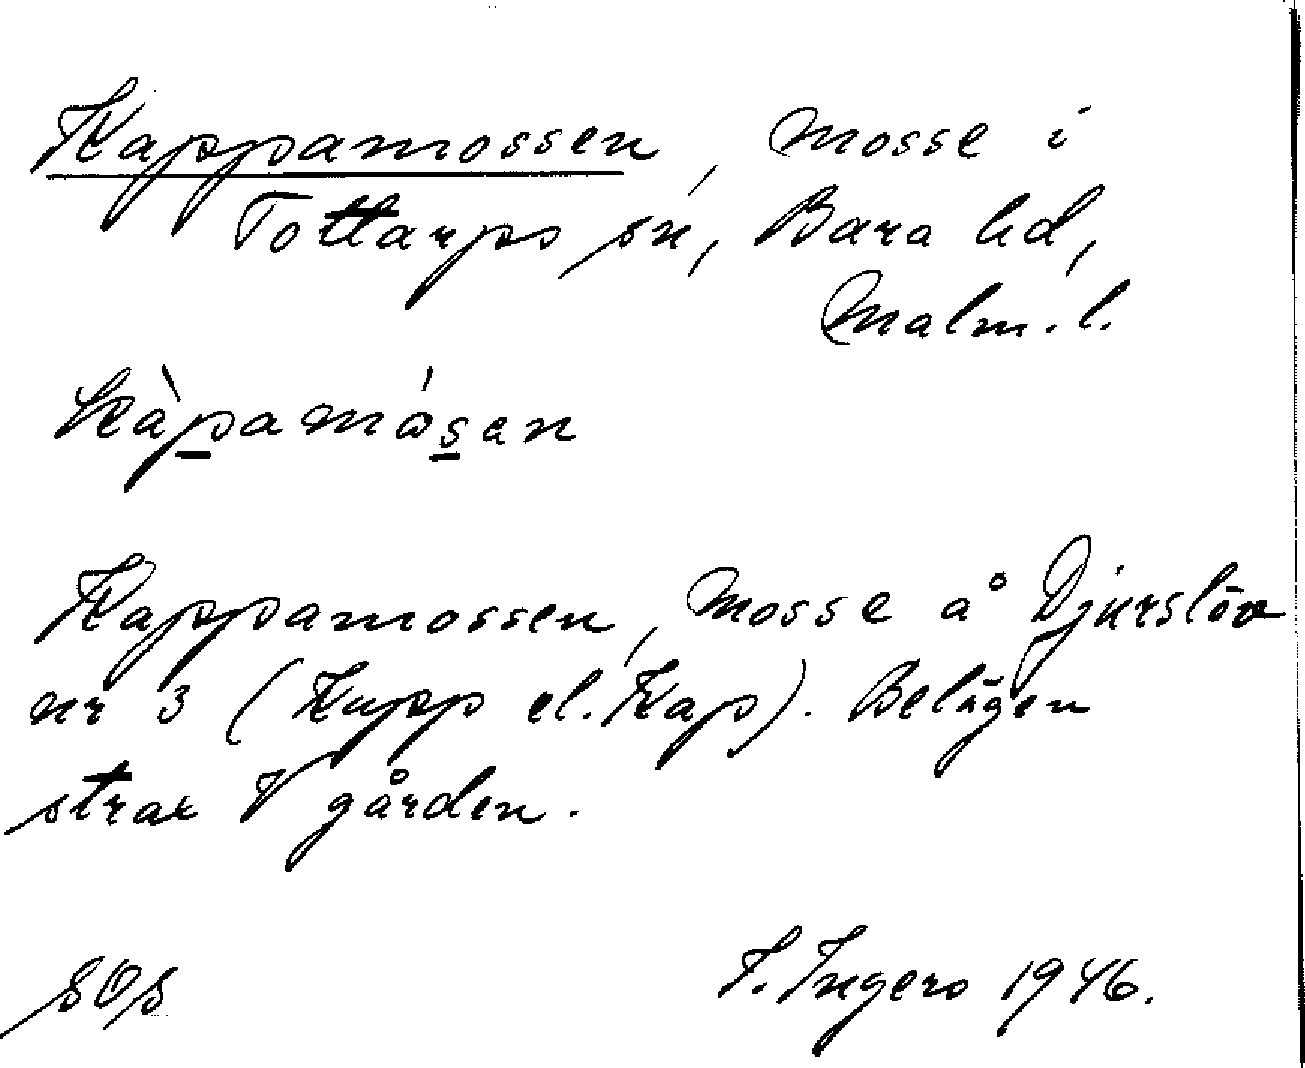 Kappamossen, mosse i
Tottarps sn, Bara hd,
Malm. l.
kàpamósen
Kappamossen, mosse å Djurslöv
nr 3 (Kapp el. Kap). Belägen
strax V gården.
SOS F. Ingers 1946.